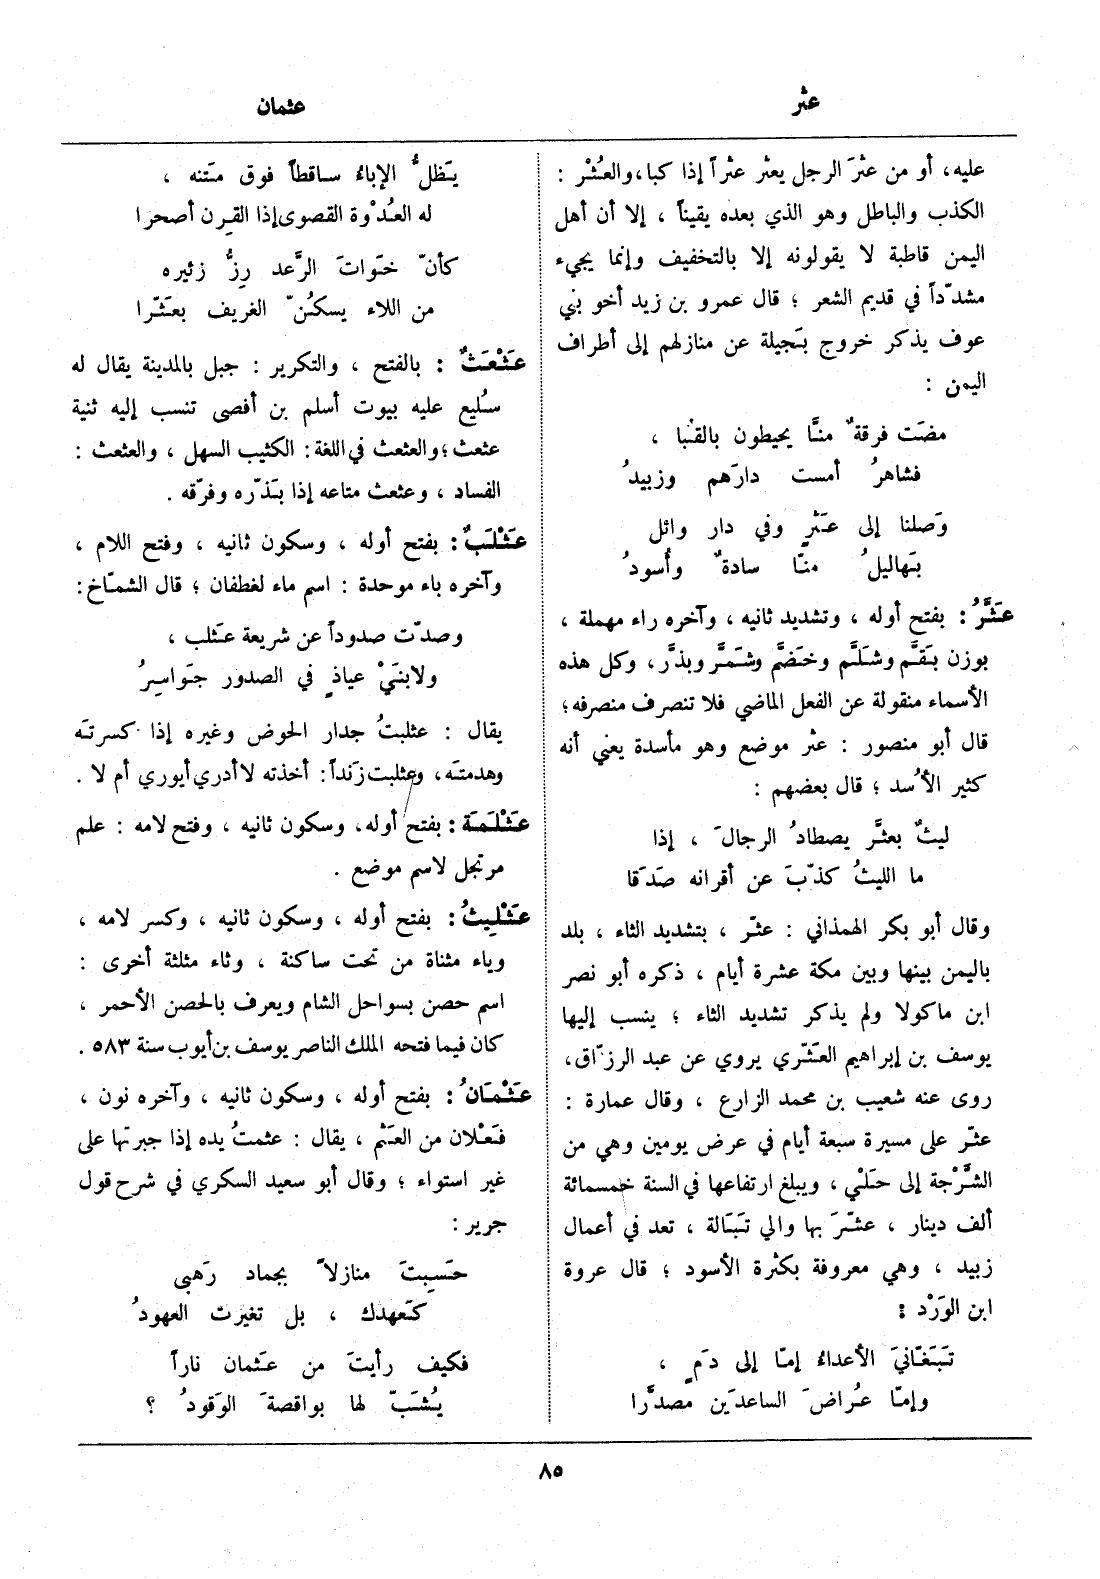 عثر
عثمان
عليه، أو من عثرَ الرجل يعثر عثراً إذا كبا، والعُثْر :
الكذب والباطل وهو الذي بعده يقيناً ، إلا أن أهل
اليمن قاطبة لا يقولونه إلا بالتخفيف وإنما يجيء
مشدّداً في قديم الشعر ؛ قال عمرو بن زيد أخو بني
عوف يذكر خروج بَجيلة عن منازلهم إلى أطراف
اليمن :
مضَت فرقةٌ منَّا يحيطون بالقَنا ،
فشاهرُ أمست دارَهم وزبيدُ
وَصلنا إلى عَثْرٍ وفي دار وائل
بَهاليلُ منّا سادةٌ وأُسودُ
عَثَّرُ : بفتح أوله ، وتشديد ثانيه ، وآخره راء مهملة ،
بوزن بَقَّم وشَلَّم وخَضَّم وشَمَّر وبذَّر، وكل هذه
الأسماء منقولة عن الفعل الماضي فلا تنصرف منصرفه؛
قال أبو منصور : عثر موضع وهو مأسدة يعني أنه
كثير الأُسد ؛ قال بعضهم :
ليثٌ بعثَّر يصطادُ الرجالَ ، إذا
ما الليثُ كذّبَ عن أقرانه صَدَقا
وقال أبو بكر الهمذاني : عثّر ، بتشديد الثاء ، بلد
باليمن بينها وبين مكة عشرة أيام ، ذكره أبو نصر
ابن ماكولا ولم يذكر تشديد الثاء ؛ ينسب إليها
يوسف بن إبراهيم العَثّري يروي عن عبد الرزّاق،
روى عنه شعيب بن محمد الزارع ، وقال عمارة :
عثّر على مسيرة سبعة أيام في عرض يومين وهي من
الشَّرْجة إلى حَلْي ، ويبلغ ارتفاعها في السنة خمسمائة
ألف دينار ، عثّرَ بها والي تَبَالة ، تعد في أعمال
زبيد ، وهي معروفة بكثرة الأسود ؛ قال عروة
ابن الوَرْد :
تَبَغّانيَ الأعداءُ إمّا إلى دَمٍ ،
وإمّا عُراضَ الساعدَين مصدَّرا
يَظلُّ الإباءُ ساقطاً فوق مَتنه ،
له العُدْوة القصوى إذا القِرن أصحرا
كأنّ خَوَاتَ الرَّعد رِزُّ زئيره
من اللاء يسكُنّ الغريف بعَثّرا
عَثْعَثٌ : بالفتح ، والتكرير : جبل بالمدينة يقال له
سُليع عليه بيوت أسلم بن أفصى تنسب إليه ثنية
عثعث؛ والعثعث في اللغة: الكثيب السهل ، والعثعث :
الفساد ، وعثعث متاعه إذا بَذّره وفرّقه .
عَثْلَبٌ : بفتح أوله ، وسكون ثانيه ، وفتح اللام ،
وآخره باء موحدة : اسم ماء لغطفان ؛ قال الشمّاخ:
وصدّت صدوداً عن شريعة عَثلب ،
ولابنَيْ عياذٍ في الصدور جَواسِرُ
يقال : عثلبتُ جدار الحوض وغيره إذا كسرتَه
وهدمتَه، وعثلبت زَنداً : أخذته لا أدري أيوري أم لا .
عَثْلَمَة : بفتح أوله، وسكون ثانيه ، وفتح لامه : علم
مرتجل لاسم موضع .
عَثْلِيثُ : بفتح أوله ، وسكون ثانيه ، وكسر لامه ،
وياء مثناة من تحت ساكنة ، وثاء مثلثة أخرى :
اسم حصن بسواحل الشام ويعرف بالحصن الأحمر ،
كان فيما فتحه الملك الناصر يوسف بن أيوب سنة ٥٨٣ .
عَثْمَانُ : بفتح أوله ، وسكون ثانيه ، وآخره نون ،
فَعْلان من العَثْم ، يقال : عثمتُ يده إذا جبرتها على
غير استواء ؛ وقال أبو سعيد السكري في شرح قول
جرير :
حَسِبتَ منازلاً بجماد رَهبى
كَعهدك ، بل تغيرت العهودُ
فكيف رأيتَ من عَثمان ناراً
يُشَبّ لها بواقصةَ الوَقودُ ؟
٨٥